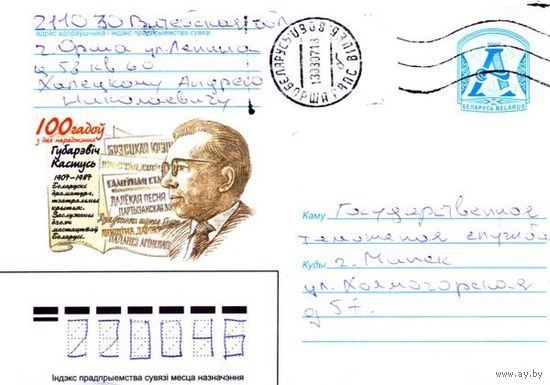 211030 Витебская обл
адрас адпраўшчыка і індэкс прадпрыемства сувязі
г Орша ул. Ленина
д 58 кв 60
Халецкому Андрею
Николаевичу
БЕЛАРУСЬ
ОРША
13030718
А
БЕЛАРУСЬ BELARUS
100 гадоў
з дня нараджэння
Губарэвіч
Кастусь
1907-1987
Беларускі
драматург,
тэатральны
крытык.
Заслужаны
дзеяч
мастацтваў
Беларусі.
БРЭСЦКАЯ КРЭПАСЦЬ
ДАЛЁКАЯ ПЕСНЯ
ПАРТЫЗАНСКАЯ
Каму Государственная
таможенная служба
Куды г. Минск
ул.
д 57.
220046
Індэкс прадпрыемства сувязі месцаназначэння
www.ay.by